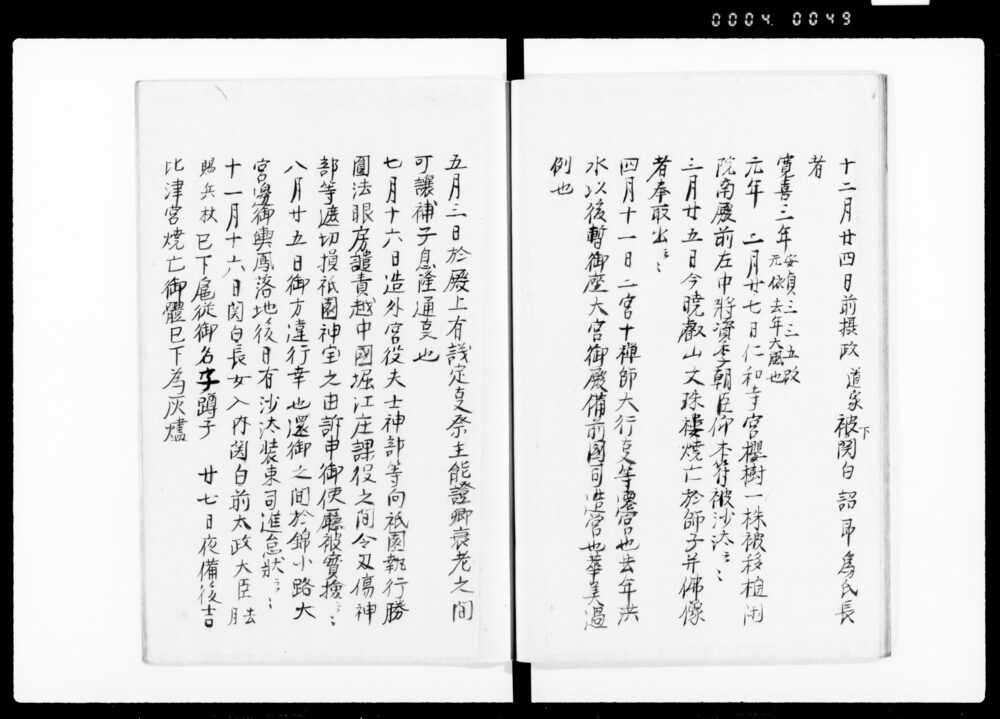 0004 0049
十二月廿四日前摂政道家被下関白詔即為氏長
者
寛喜三年
安貞三三五改
元依去年大風也
元年 二月廿七日仁和寺宮櫻樹一株被移植閑
院南殿前左中将資季朝臣仰本府被沙汰云云
三月廿五日今暁叡山文珠樓焼亡於師子并佛像
者奉取出云云
四月十一日二宮十禅師大行事等遷宮也去年洪
水以後暫御座大宮御殿備前國司造営也華美過
例也
五月三日於殿上有議定事祭主能證卿衰老之間
可譲補子息隆通事也
七月十六日造外宮役夫士神部等向祇園執行勝
圓法眼房譴責越中國堀江庄課役之間令刃傷神
部等遮切損祇園神宝之由訴申御使廳被實撿云云
八月廿五日御方違行幸也還御之間於錦小路大
宮邊御輿鳳落地後日有沙汰装束司進怠状云云
十一月十六日関白長女入内関白前太政大臣去月
賜兵杖 巳下扈従御名字蹲子 廿七日夜備後吉
比津宮焼亡御體巳下為灰燼